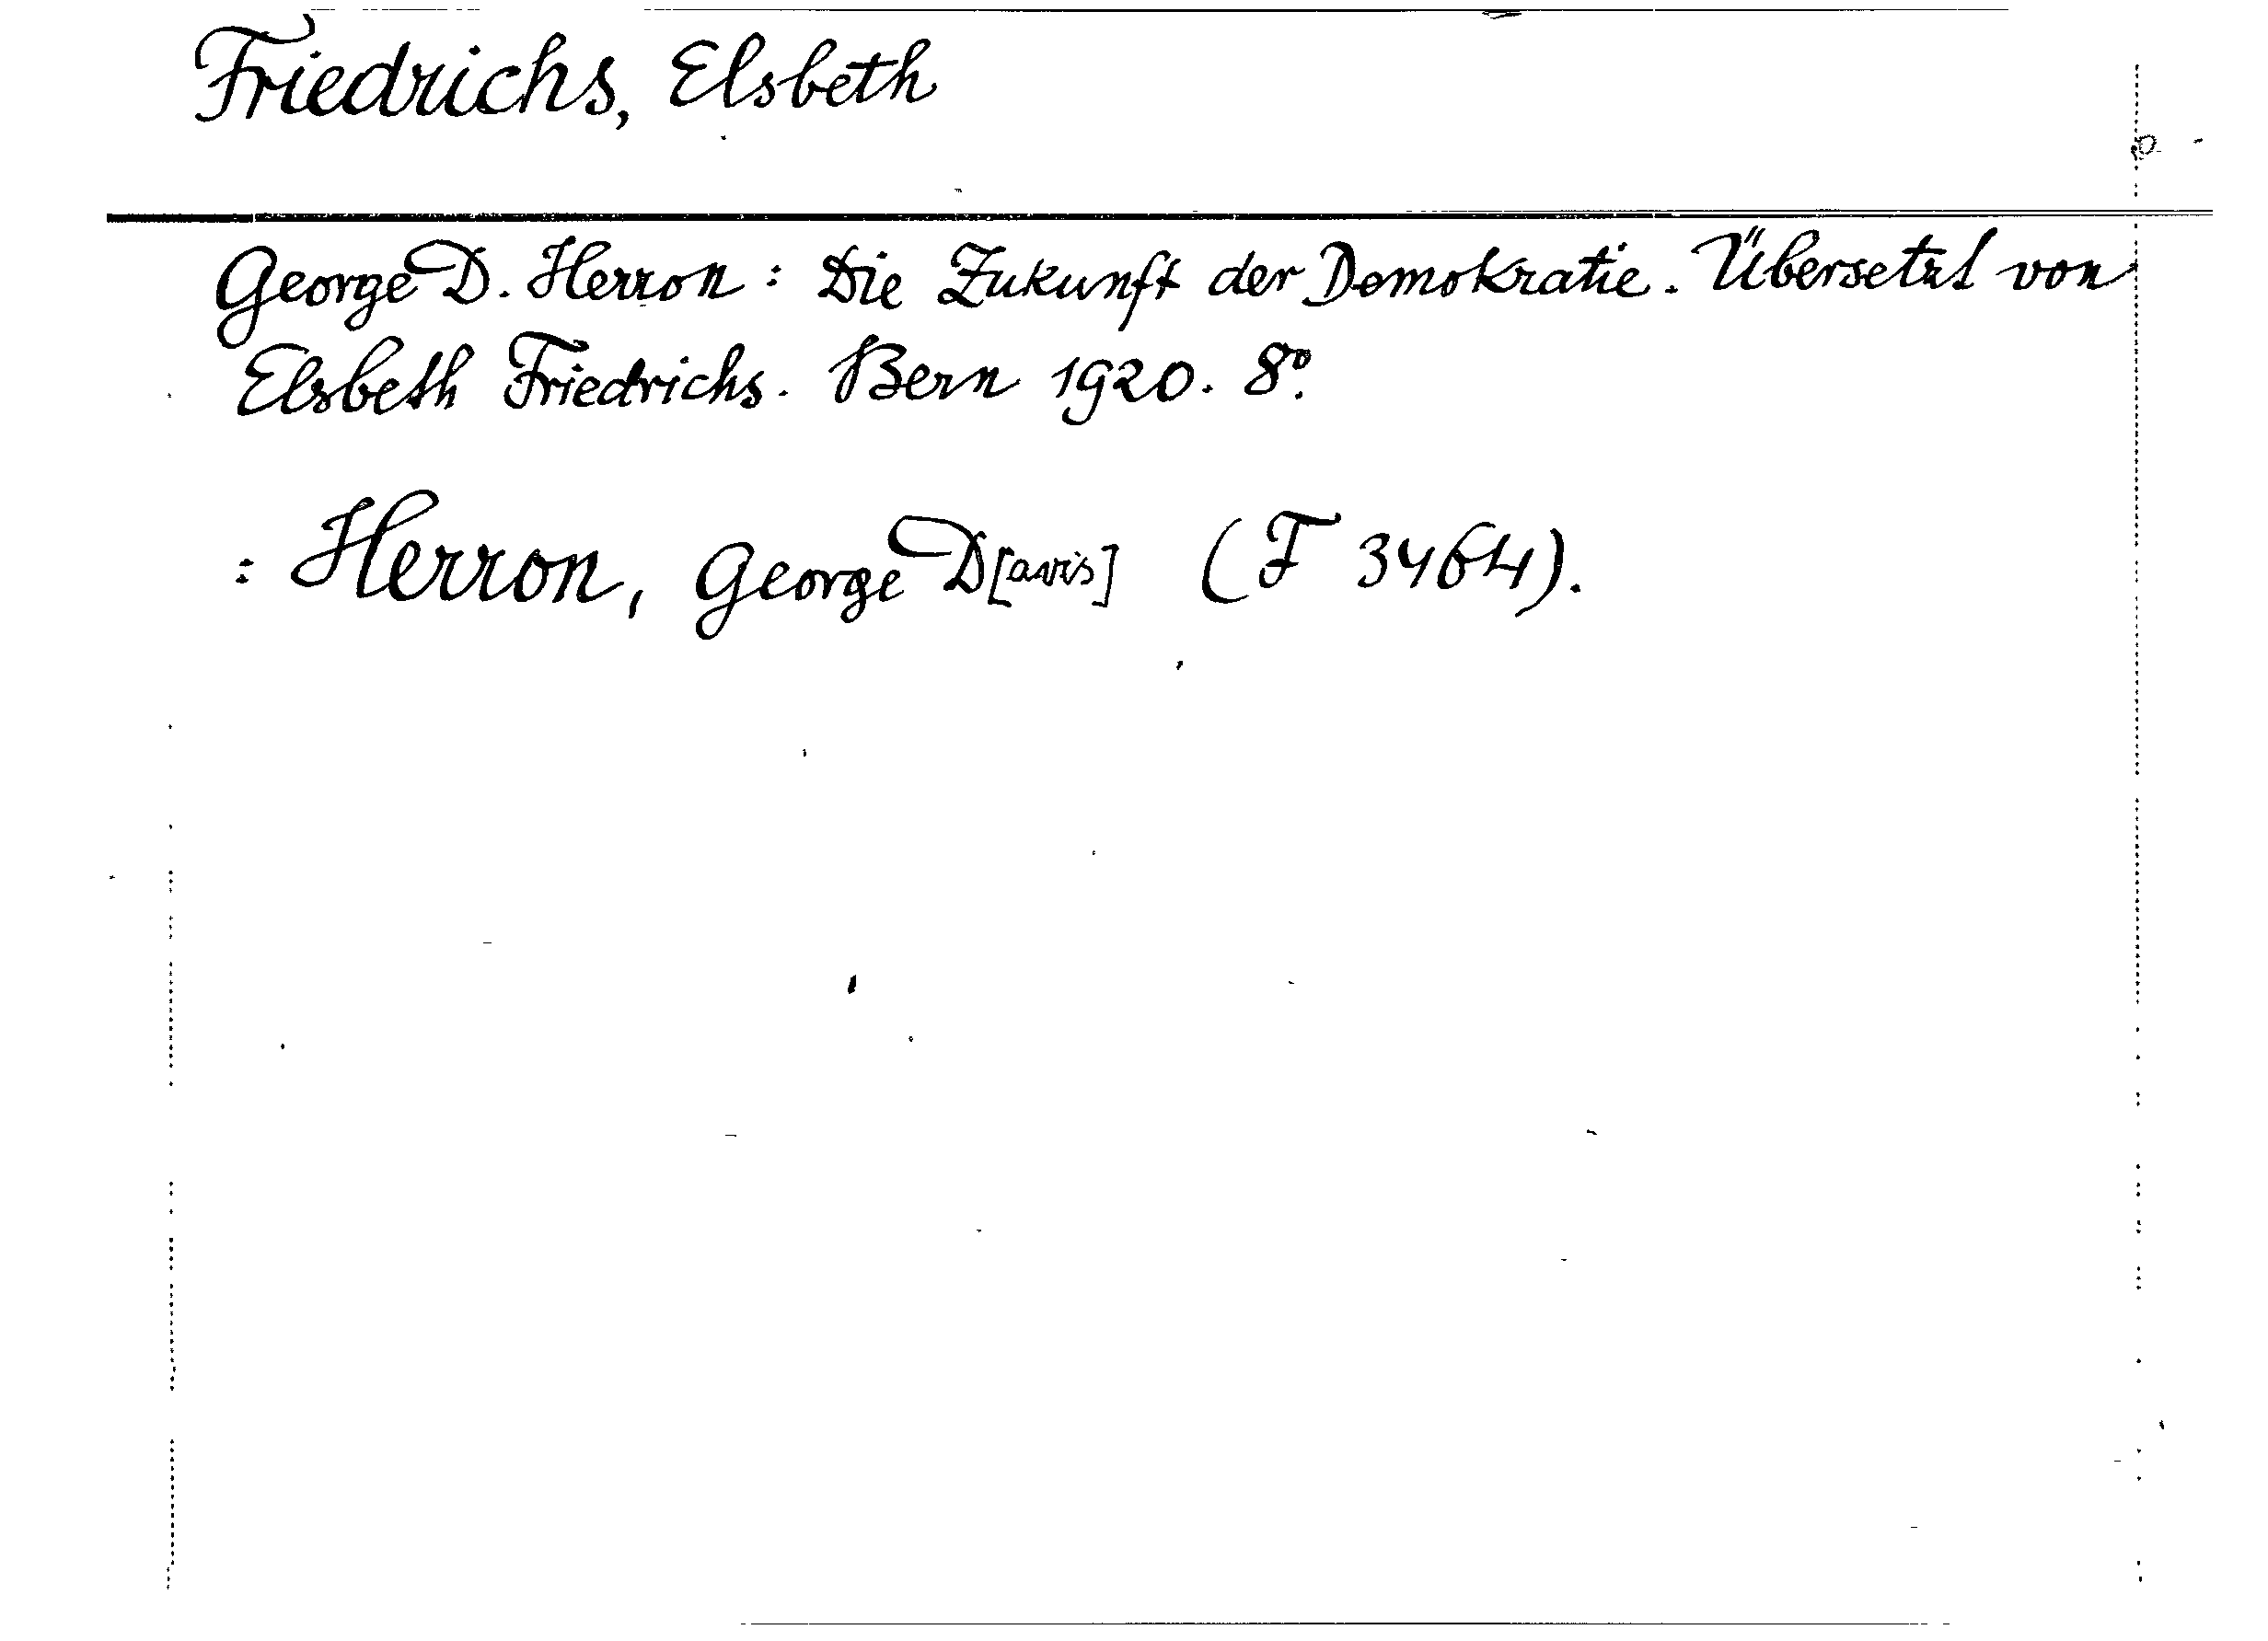 Friedrichs, Elsbeth
George D. Herron: Die Zukunft der Demokratie. Übersetzt von
Elsbeth Friedrichs. Bern 1920. 8º.
: Herron, George D[avis] (F 3464).